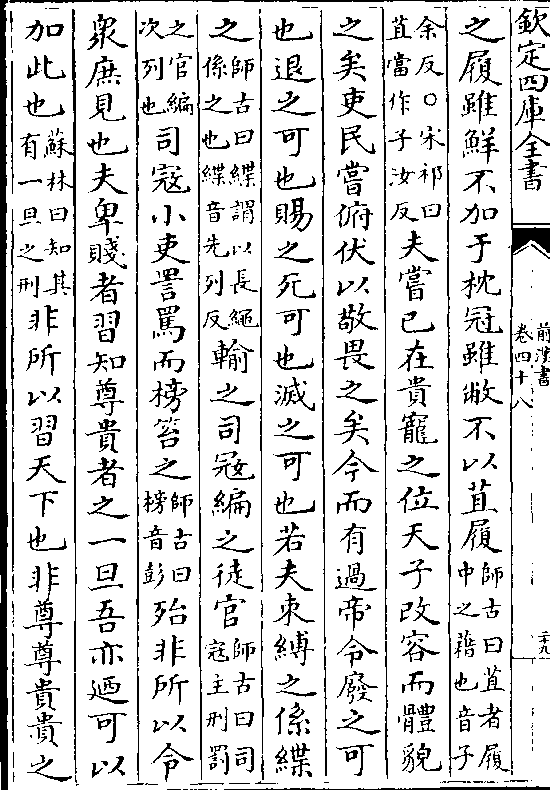 欽定四庫全書
前漢書
卷四十八
二十九
之履雖鮮不加于枕冠雖敝不以苴履師古曰苴者履中之藉也音子
余反○宋祁曰苴當作子汝反夫嘗已在貴寵之位天子改容而體貌
之矣吏民嘗俯伏以敬畏之矣今而有過帝令廢之可
也退之可也賜之死可也滅之可也若夫束縛之係緤
之師古曰緤謂以長繩係之也緤音先列反輸之司冦編之徒官師古曰司寇主刑罰
之官編次列也司寇小吏詈罵而榜笞之師古曰榜音彭殆非所以令
衆庶見也夫卑賤者習知尊貴者之一旦吾亦廼可以
加此也蘇林曰知其有一旦之刑非所以習天下也非尊尊貴貴之